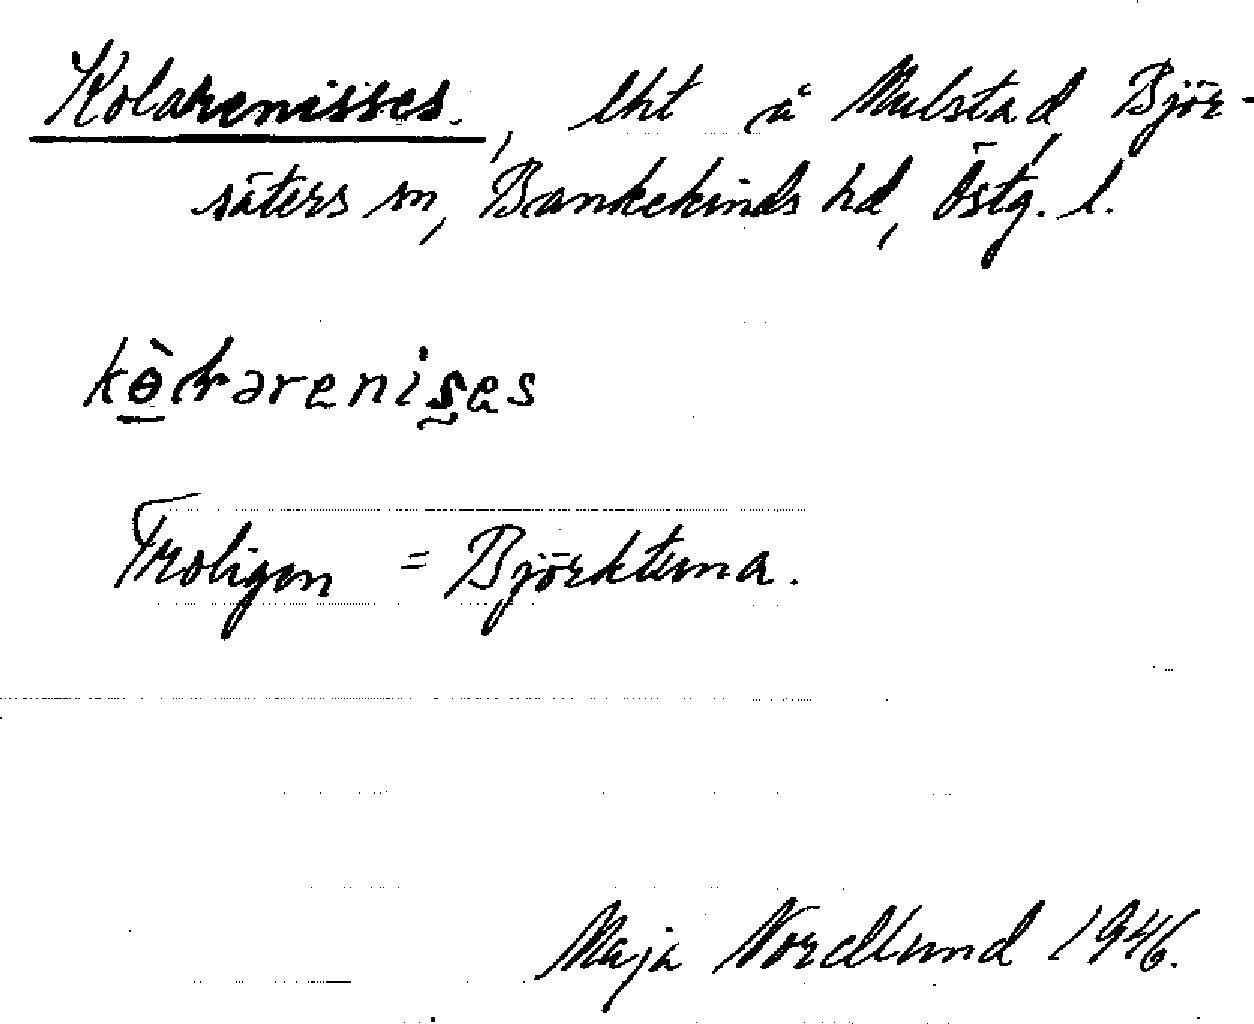 Kolarenisses., lht å Mulstad, Björ-
säters sn, Bankekinds hd, Östg. l.
Troligen = Björktuna.
Maja Nordlund 1946.